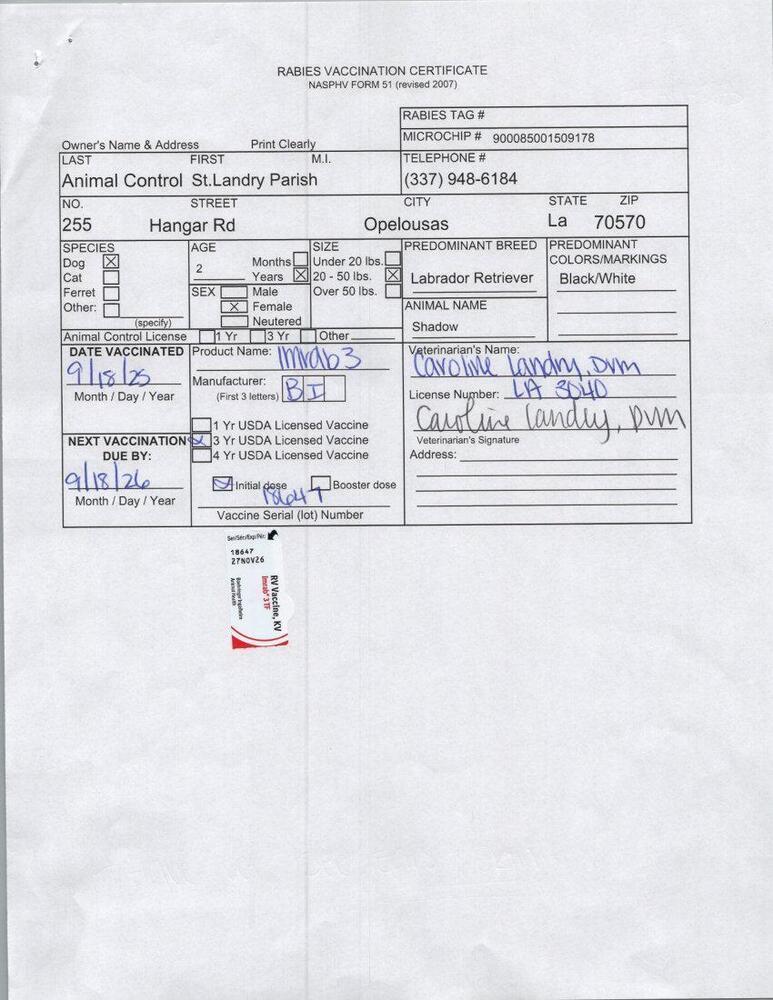 RABIES VACCINATION CERTIFICATE
NASPHV FORM 51 (revised 2007)
RABIES TAG #
MICROCHIP # 900085001509178
Owner's Name & Address Print Clearly
LAST FIRST M.I. TELEPHONE #
Animal Control St.Landry Parish (337) 948-6184
NO. STREET CITY STATE ZIP
255 Hangar Rd Opelousas La 70570
SPECIES AGE SIZE PREDOMINANT BREED PREDOMINANT
COLORS/MARKINGS
Dog X Months Under 20 lbs.
2
Cat Years X 20 - 50 lbs. X Labrador Retriever Black/White
Ferret SEX Male Over 50 lbs.
Other: X Female ANIMAL NAME
(specify) Neutered Shadow
Animal Control License 1 Yr 3 Yr Other
DATE VACCINATED Product Name: Imrab 3 Veterinarian's Name:
9/18/25 Caroline Landry, DVM
Month / Day / Year Manufacturer: B I License Number: LA 3040
(First 3 letters)
Caroline Landry, DVM
1 Yr USDA Licensed Vaccine
NEXT VACCINATION 3 Yr USDA Licensed Vaccine Veterinarian's Signature
DUE BY: 4 Yr USDA Licensed Vaccine Address:
9/18/26
Initial dose Booster dose
Month / Day / Year 18647
Vaccine Serial (lot) Number
Ser/Sér/Exp/Pér:
18647
27NOV26
RV Vaccine, KV
Imrab® 3 TF
Boehringer Ingelheim
Animal Health